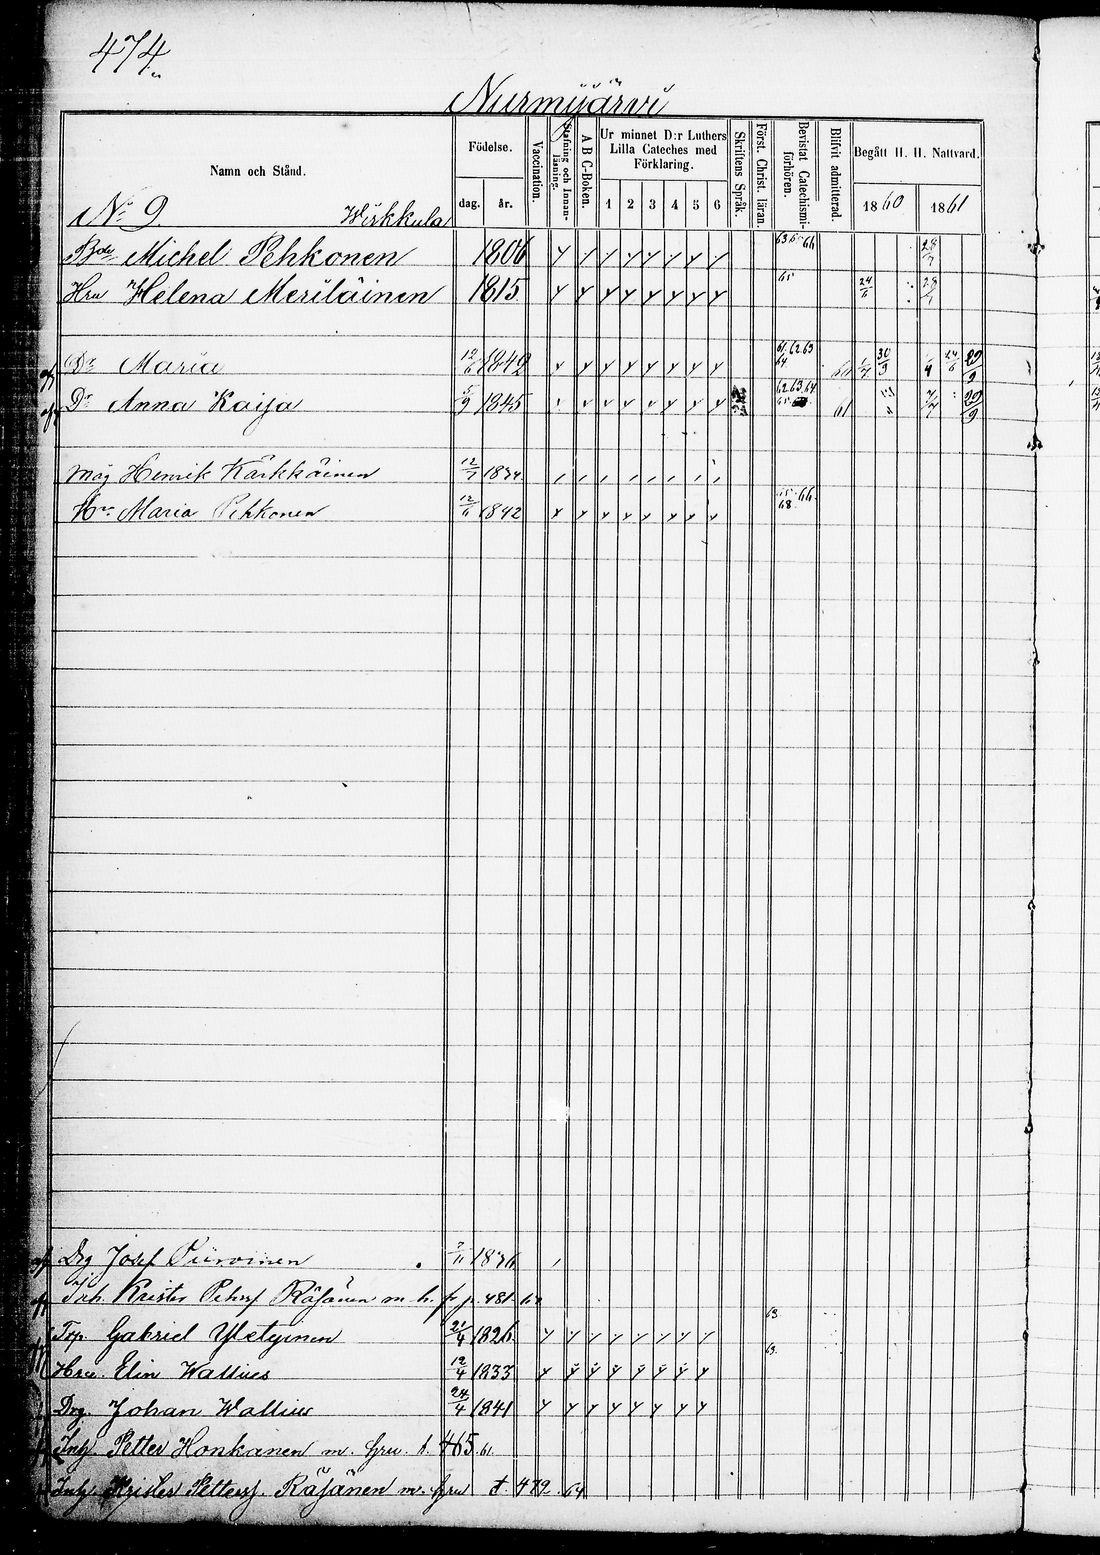 474
Nurmijärvi
Namn och Stånd.
Födelse.
dag. år.
Vaccination.
Stafning och Innanläsning.
A B C-Boken.
Ur minnet D:r Luthers Lilla Cateches med Förklaring.
1 2 3 4 5 6
Skriftens Språk.
Först. Christ. läran.
Bevistat Catechismiförhören.
Blifvit admitterad.
Begått H. H. Nattvard.
1860 1861
No 9. Wirkkula
Bde Michel Pehkonen 1806 63 65 66 28/7
Hru Helena Meriläinen 1815 65 24/6 28/7
Dr Maria 12/6 1842 61 62 63 64 30/9 24/6 29/9
Dr Anna Kaija 5/9 1845 62 63 64 65 61 7/7 29/9
Måg Henrik Kärkkäinen 12/7 1834
Hru Maria Pehkonen 12/6 1842 65 66 68
Drg Josef Piiroinen 1836
Inh. Krister Petterss. Räisänen m. h. fr p. 481
Torp. Gabriel Yletyinen 21/4 1826 63
Hru. Elin Wallius 12/4 1833 63
Drg. Johan Wallius 24/4 1841
Inh. Petter Honkanen m. hru. t. 465 61
Inh. Krister Petterss. Räisänen m. hru t. 479 64